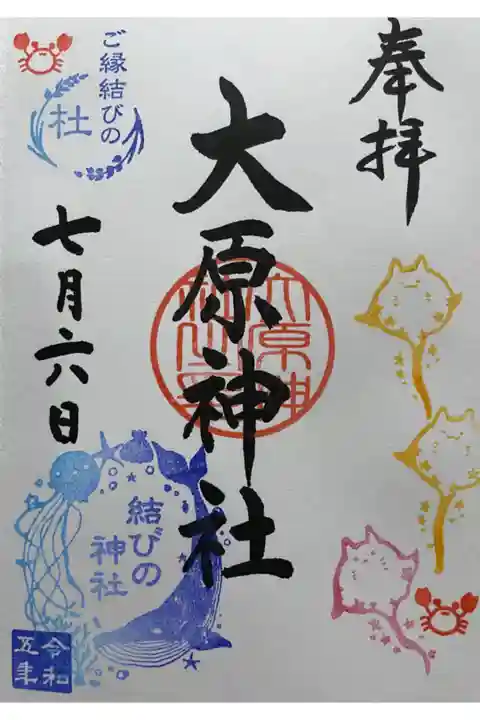 奉拝
大原神社
大原神社之印
ご縁結びの
杜
七月六日
結びの
神社
令和
五年